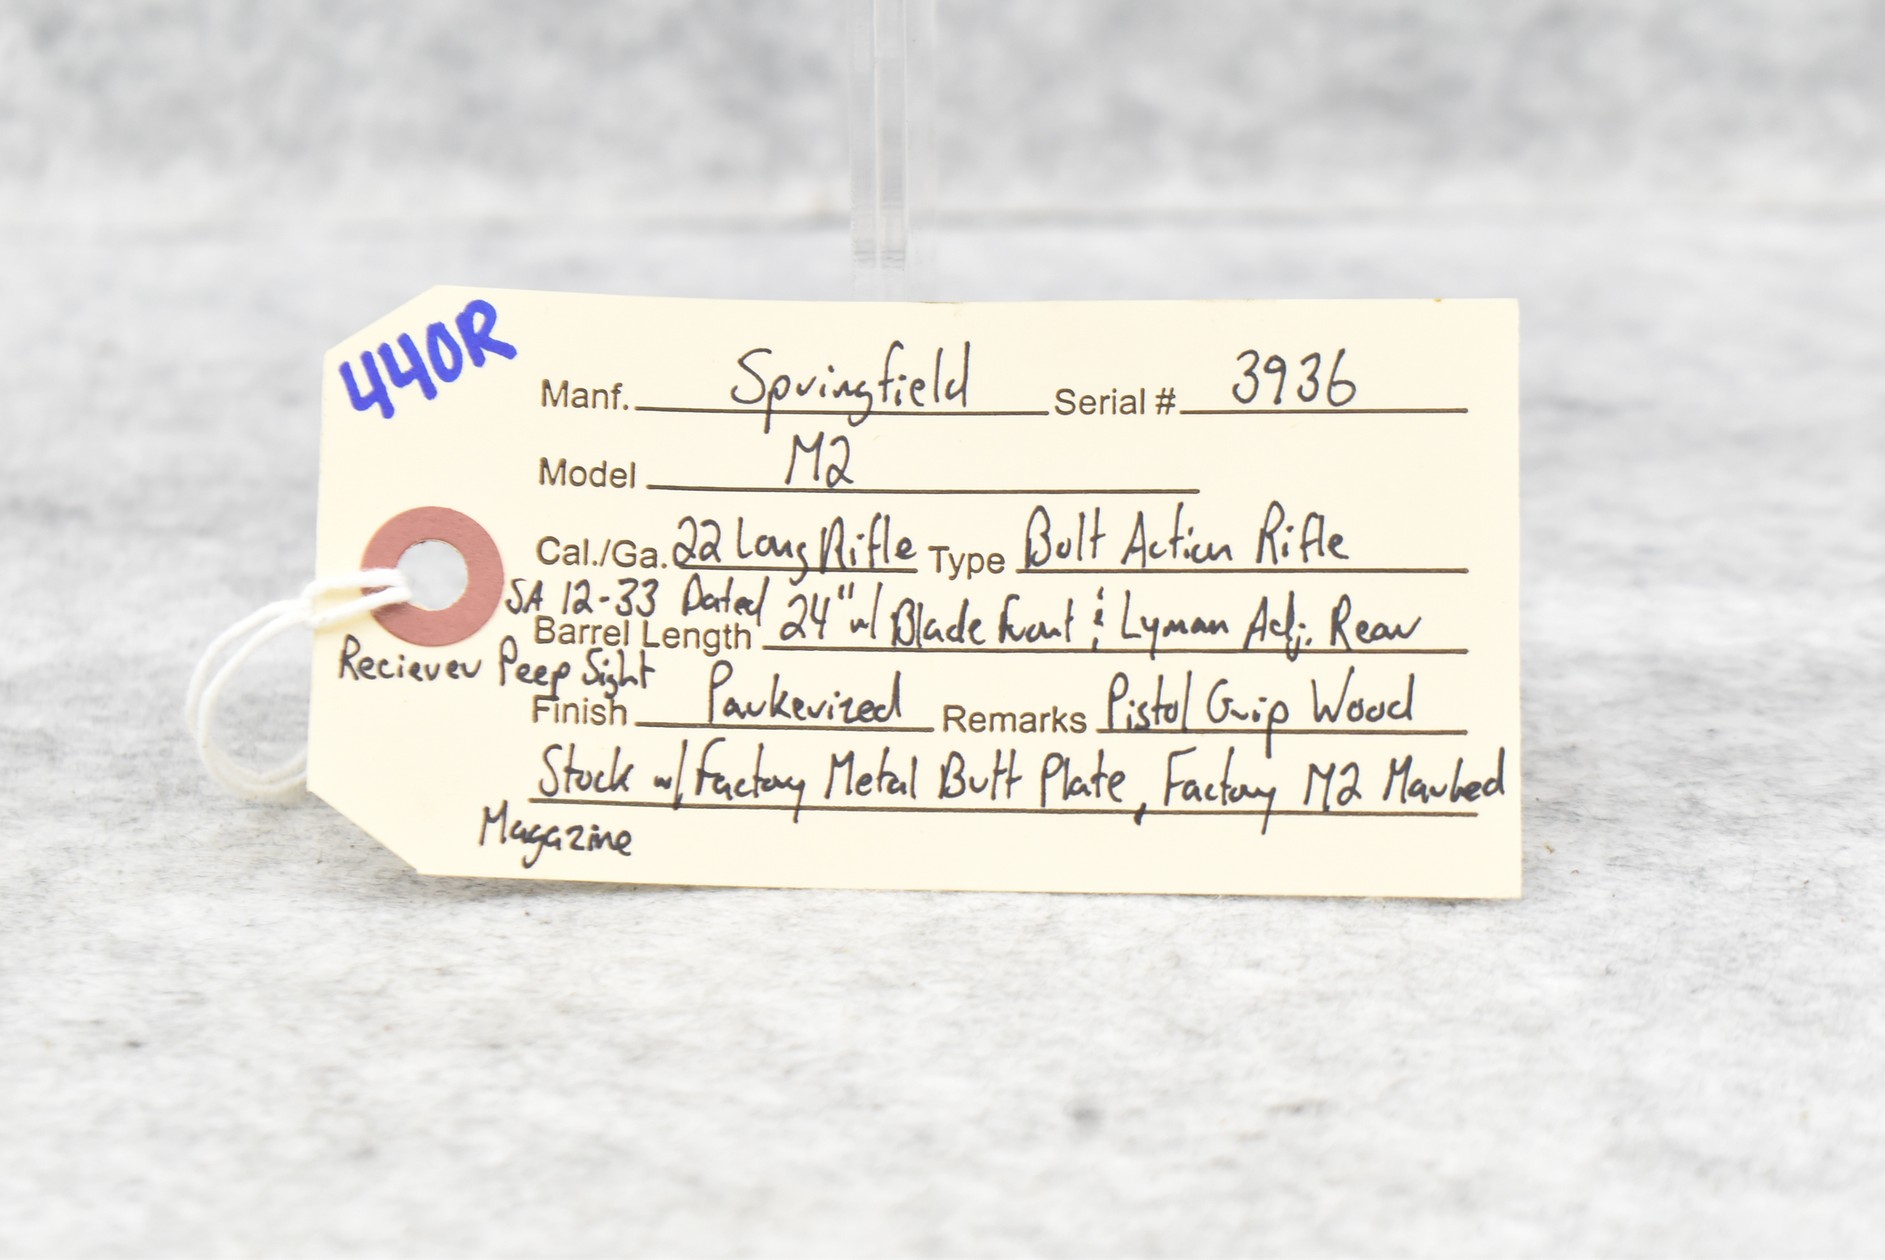 440R
Manf. Springfield Serial # 3936
Model M2
Cal./Ga. 22 Long Rifle Type Bolt Action Rifle
SA 12-33 Dated
Barrel Length 24" w/ Blade Front & Lyman Adj. Rear
Reciever Peep Sight
Finish Parkerized Remarks Pistol Grip Wood
Stock w/ Factory Metal Butt Plate, Factory M2 Marked
Magazine